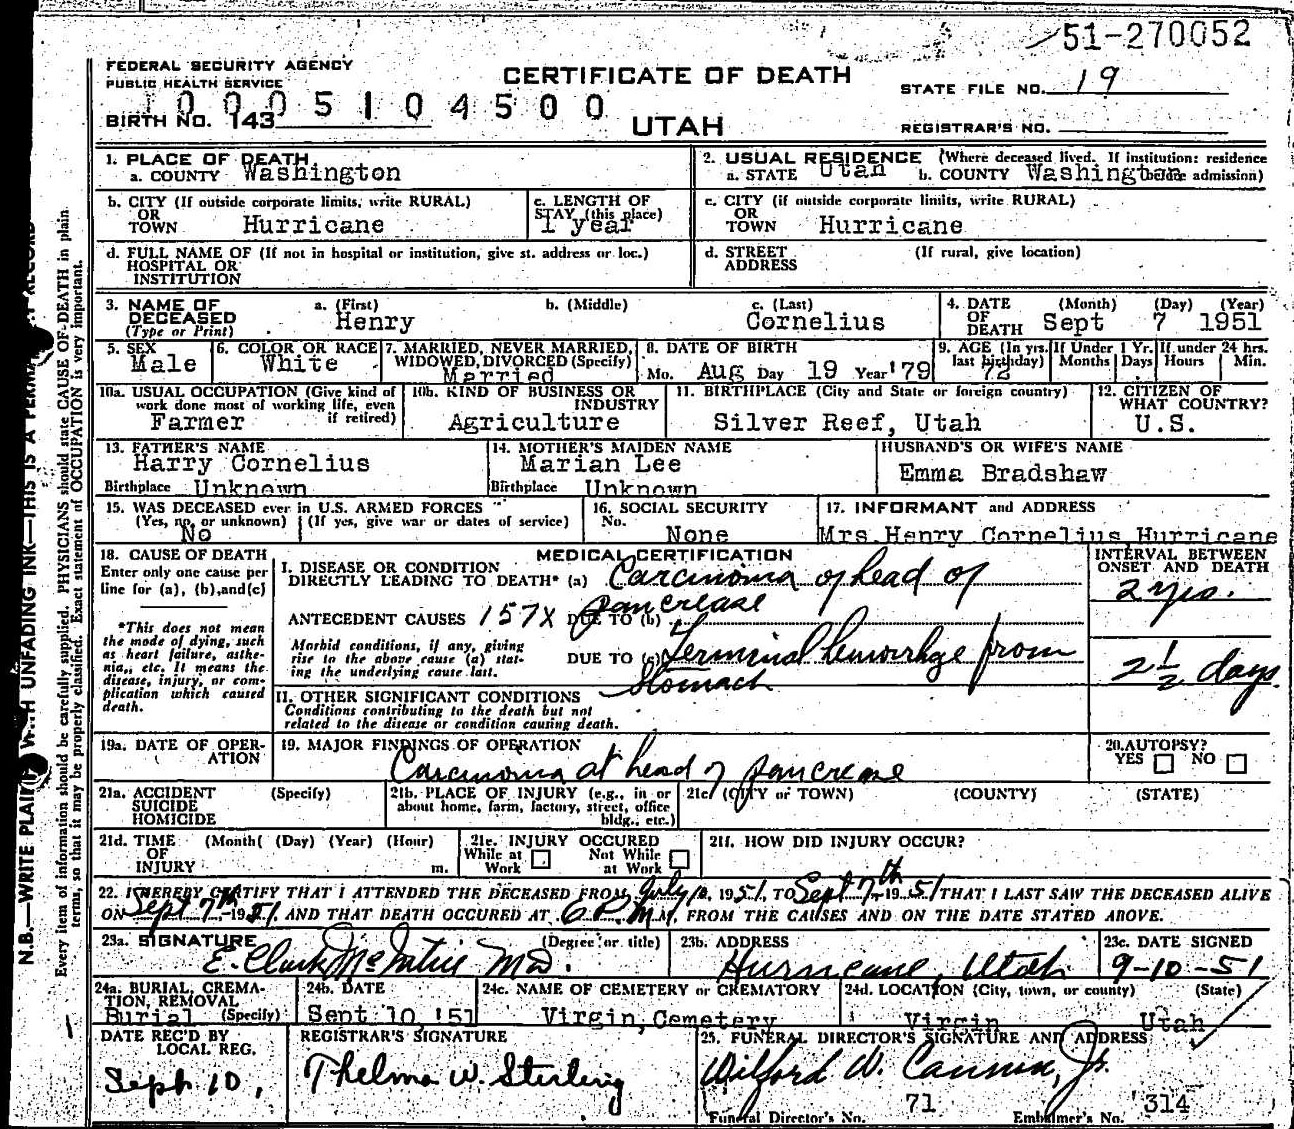 51-270052
FEDERAL SECURITY AGENCY
PUBLIC HEALTH SERVICE
CERTIFICATE OF DEATH
STATE FILE NO. 19
1 0 0 0 5 1 0 4 5 0 0
BIRTH NO. 143
UTAH
REGISTRAR'S NO.
1. PLACE OF DEATH
a. COUNTY Washington
2. USUAL RESIDENCE (Where deceased lived. If institution: residence
a. STATE Utah b. COUNTY Washington admission)
b. CITY (If outside corporate limits, write RURAL)
OR
TOWN Hurricane
c. LENGTH OF
STAY (this place)
1 year
c. CITY (if outside corporate limits, write RURAL)
OR
TOWN Hurricane
d. FULL NAME OF (If not in hospital or institution, give st. address or loc.)
HOSPITAL OR
INSTITUTION
d. STREET (If rural, give location)
ADDRESS
3. NAME OF
DECEASED
(Type or Print)
a. (First) b. (Middle) c. (Last)
Henry Cornelius
4. DATE (Month) (Day) (Year)
OF
DEATH Sept 7 1951
5. SEX
Male
6. COLOR OR RACE
White
7. MARRIED, NEVER MARRIED,
WIDOWED, DIVORCED (Specify)
Married
8. DATE OF BIRTH
Mo. Aug Day 19 Year '79
9. AGE (In yrs.
last birthday)
72
If Under 1 Yr.
Months Days
If under 24 hrs.
Hours Min.
10a. USUAL OCCUPATION (Give kind of
work done most of working life, even
if retired)
Farmer
10b. KIND OF BUSINESS OR
INDUSTRY
Agriculture
11. BIRTHPLACE (City and State or foreign country)
Silver Reef, Utah
12. CITIZEN OF
WHAT COUNTRY?
U.S.
13. FATHER'S NAME
Harry Cornelius
Birthplace Unknown
14. MOTHER'S MAIDEN NAME
Marian Lee
Birthplace Unknown
HUSBAND'S OR WIFE'S NAME
Emma Bradshaw
15. WAS DECEASED ever in U.S. ARMED FORCES
(Yes, no, or unknown) (If yes, give war or dates of service)
No
16. SOCIAL SECURITY
No.
None
17. INFORMANT and ADDRESS
Mrs.Henry Cornelius Hurricane
18. CAUSE OF DEATH
Enter only one cause per
line for (a), (b),and(c)
*This does not mean
the mode of dying, such
as heart failure, asthe-
nia, etc. It means the
disease, injury, or com-
plication which caused
death.
MEDICAL CERTIFICATION
I. DISEASE OR CONDITION
DIRECTLY LEADING TO DEATH* (a) Carcinoma of head of
pancrease
ANTECEDENT CAUSES 157X DUE TO (b)
Morbid conditions, if any, giving
rise to the above cause (a) stat-
ing the underlying cause last.
DUE TO (c) Terminal hemorrhge from
Stomach
II. OTHER SIGNIFICANT CONDITIONS
Conditions contributing to the death but not
related to the disease or condition causing death.
INTERVAL BETWEEN
ONSET AND DEATH
2 yrs.
2 1/2 days.
19a. DATE OF OPER-
ATION
19. MAJOR FINDINGS OF OPERATION
Carcinoma at head of pancrease
20. AUTOPSY?
YES NO
21a. ACCIDENT (Specify)
SUICIDE
HOMICIDE
21b. PLACE OF INJURY (e.g., in or
about home, farm, factory, street, office
bldg., etc.)
21c. (CITY or TOWN) (COUNTY) (STATE)
21d. TIME (Month( (Day) (Year) (Hour)
OF
INJURY m.
21e. INJURY OCCURED
While at Work
Not While at Work
21f. HOW DID INJURY OCCUR?
22. I HEREBY CERTIFY THAT I ATTENDED THE DECEASED FROM July 1951, TO Sept 7th 1951 THAT I LAST SAW THE DECEASED ALIVE
ON Sept 7th, 1951, AND THAT DEATH OCCURED AT 6 P.M., FROM THE CAUSES AND ON THE DATE STATED ABOVE.
23a. SIGNATURE (Degree or title)
E. Clark McIntire MD.
23b. ADDRESS
Hurricane, Utah
23c. DATE SIGNED
9-10-51
24a. BURIAL, CREMA-
TION, REMOVAL
Burial (Specify)
24b. DATE
Sept 10,'51
24c. NAME OF CEMETERY or CREMATORY
Virgin Cemetery
24d. LOCATION (City, town, or county) (State)
Virgin Utah
DATE REC'D BY
LOCAL REG.
Sept. 10,
REGISTRAR'S SIGNATURE
Thelma W. Sterling
25. FUNERAL DIRECTOR'S SIGNATURE AND ADDRESS
Wilford W. Cannon, Jr.
Funeral Director's No. 71 Embalmer's No. 314
N.B.—WRITE PLAINLY WITH UNFADING INK—THIS IS A PERMANENT RECORD
Every item of information should be carefully supplied. PHYSICIANS should state CAUSE OF DEATH in plain
terms, so that it may be properly classified. Exact statement of OCCUPATION is very important.